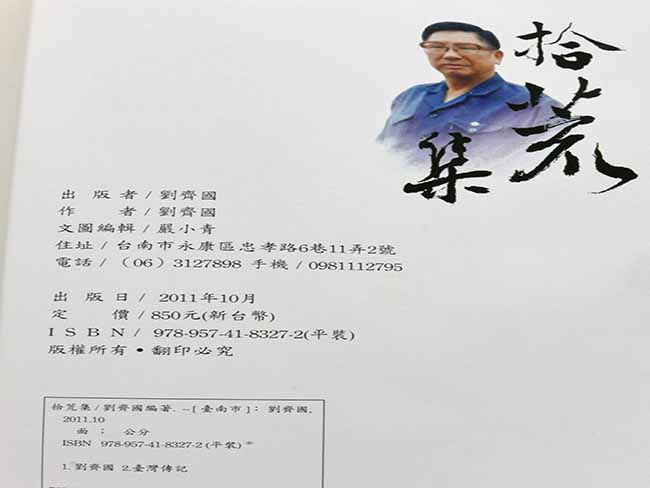 拾荒集
出版者/劉齊國
作　　者/劉齊國
文圖編輯/嚴小青
住址/台南市永康區忠孝路6巷11弄2號
電話/（06）3127898 手機/0981112795
出 版 日/ 2011年10月
定　　價/850元(新台幣)
I S B N/ 978-957-41-8327-2(平裝)
版權所有•翻印必究
拾荒集/劉齊國編著. --[臺南市]：劉齊國,
2011.10
面；　公分
ISBN 978-957-41-8327-2 (平裝)
1.劉齊國 2.臺灣傳記